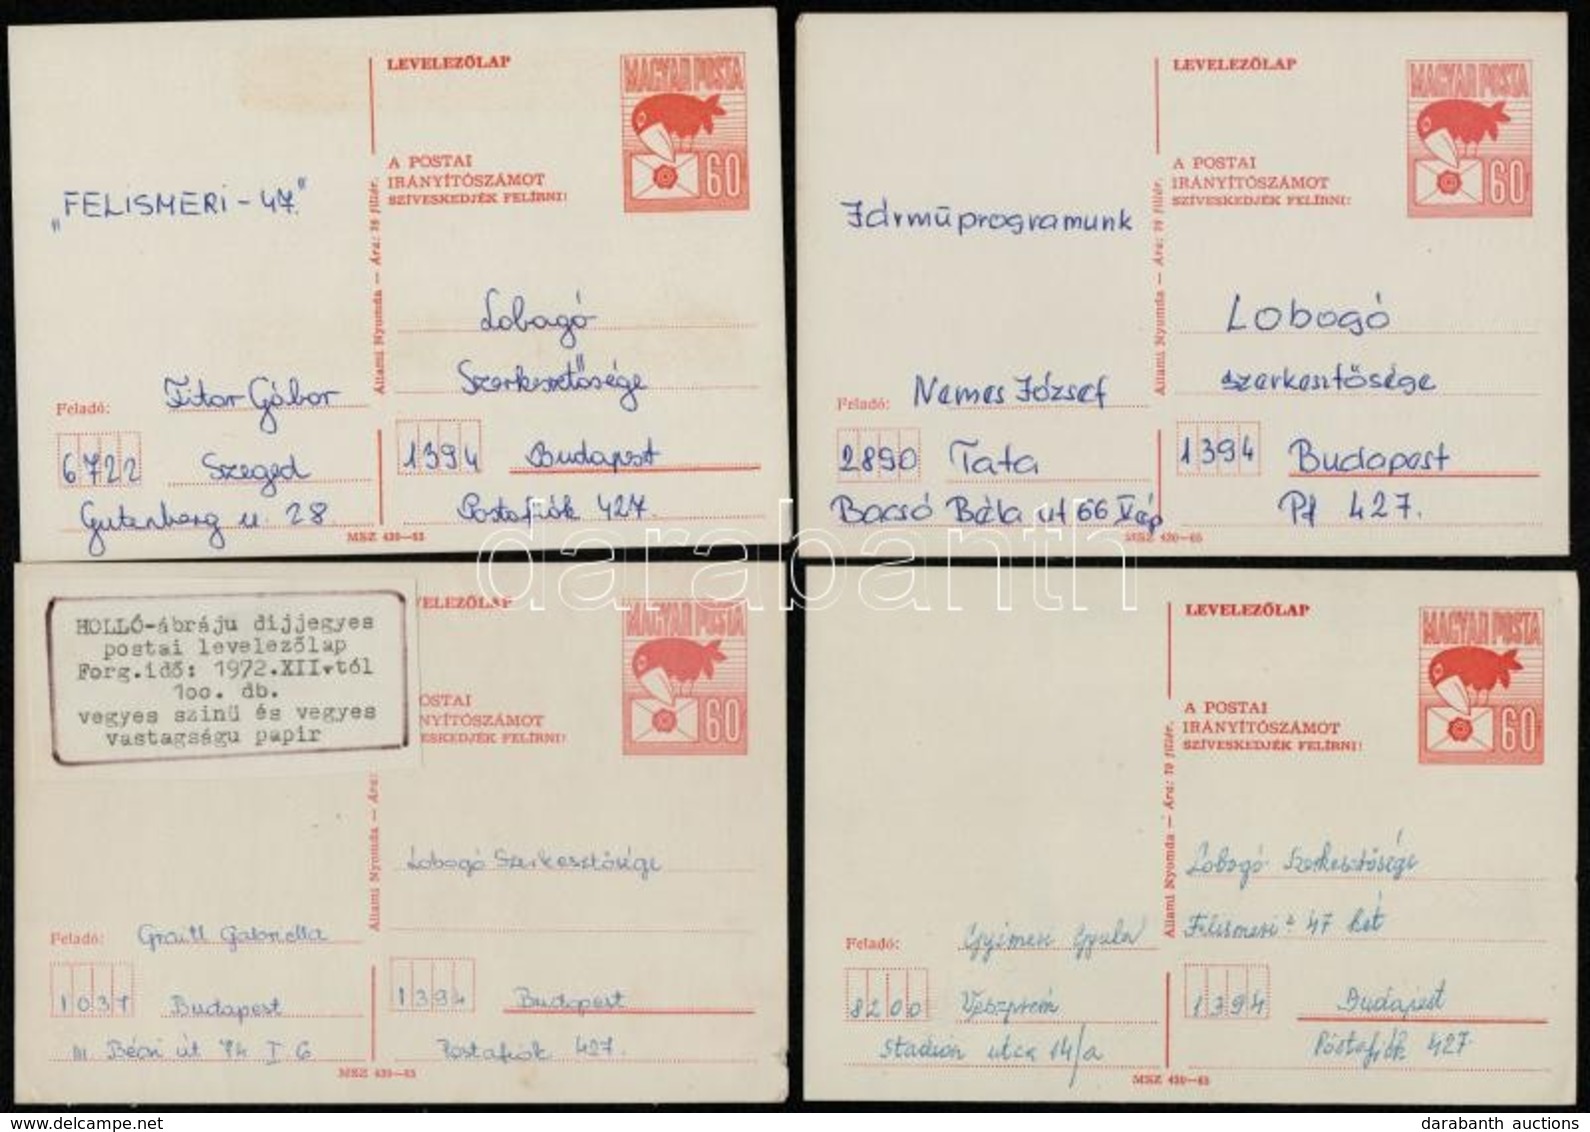 LEVELEZŐLAP
MAGYAR POSTA
60
A POSTAI
IRÁNYÍTÓSZÁMOT
SZÍVESKEDJÉK FELÍRNI!
Állami Nyomda — Ára: 70 fillér.
"FELISMERI-47"
Lobogó
Szerkesztősége
Feladó: Titor Gábor
6722 Szeged
Gutenberg u. 28.
1394 Budapest
Postafiók 427.
MSZ 430—65
LEVELEZŐLAP
MAGYAR POSTA
60
A POSTAI
IRÁNYÍTÓSZÁMOT
SZÍVESKEDJÉK FELÍRNI!
Állami Nyomda — Ára: 70 fillér.
Járműprogramunk
Lobogó
szerkesztősége
Feladó: Nemes József
2890 Tata
Bacsó Béla ut 66
1394 Budapest
Pf 427.
MSZ 430—65
darabanth
HOLLÓ-ábráju dijjegyes
postai levelezőlap
Forg.idő: 1972.XII.től
1oo. db.
vegyes szinű és vegyes
vastagságu papir
VELEZŐLAP
MAGYAR POSTA
60
OSTAI
NYÍTÓSZÁMOT
ESKEDJÉK FELÍRNI!
Állami Nyomda — Ára:
Lobogó Szerkesztősége
Feladó: Gabriella
1037 Budapest
III. Bécsi út 74 I 6
1394 Budapest
Postafiók 427.
MSZ 430—65
LEVELEZŐLAP
MAGYAR POSTA
60
A POSTAI
IRÁNYÍTÓSZÁMOT
SZÍVESKEDJÉK FELÍRNI!
Állami Nyomda — Ára: 70 fillér.
Lobogó Szerkesztősége
Felismeri? 47 hét
Feladó: Gyimesi Gyula
8200 Veszprém
Stadion utca 14/a
1394 Budapest
Postafiók 427
MSZ 430—65
darabanth auctions